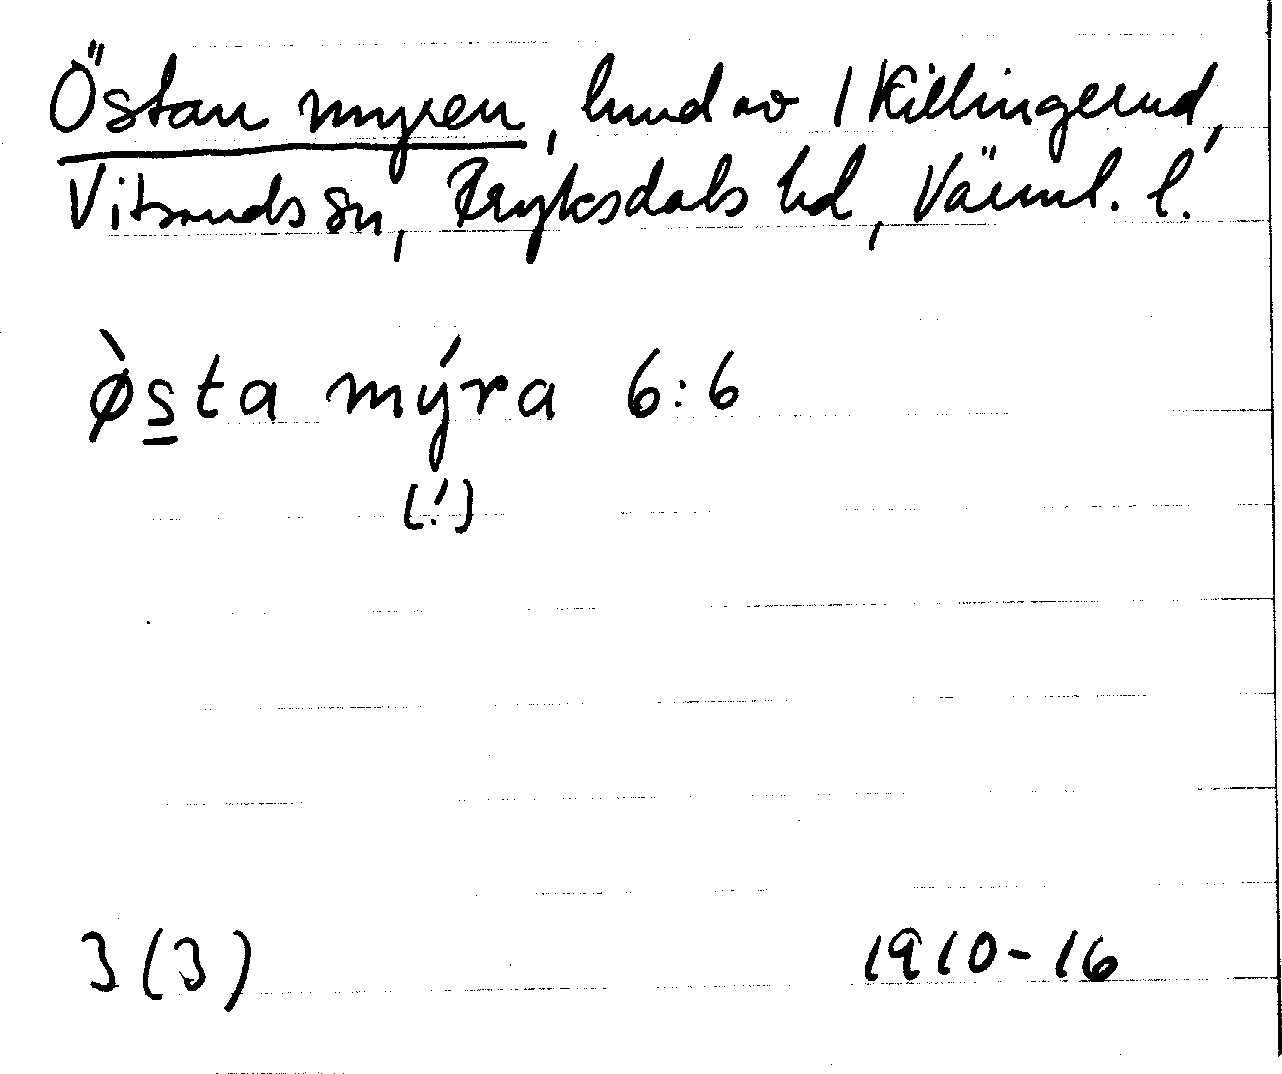 Östan myren, hmd av 1 Killingerud,
Vitsands sn, Fryksdals hd, Värml. l.
ø̀s̲ta mýra 6:6
(!)
3(3) 1910-16